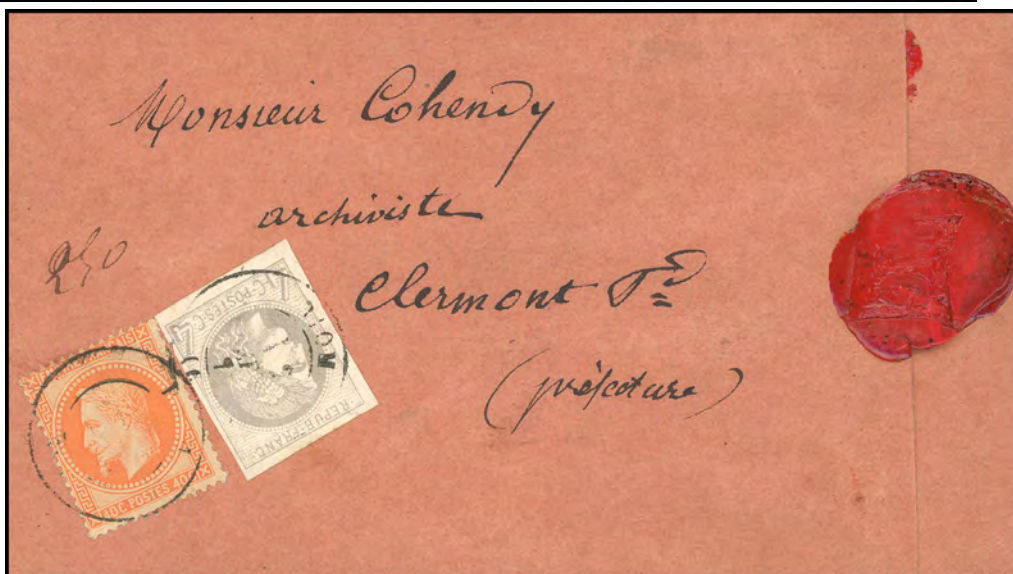 Monsieur Cohendy
archiviste
250
Clermont Fd
(préfecture)
4 C·POSTES·C 4
REPUB·FRANC·
40C POSTES 40C